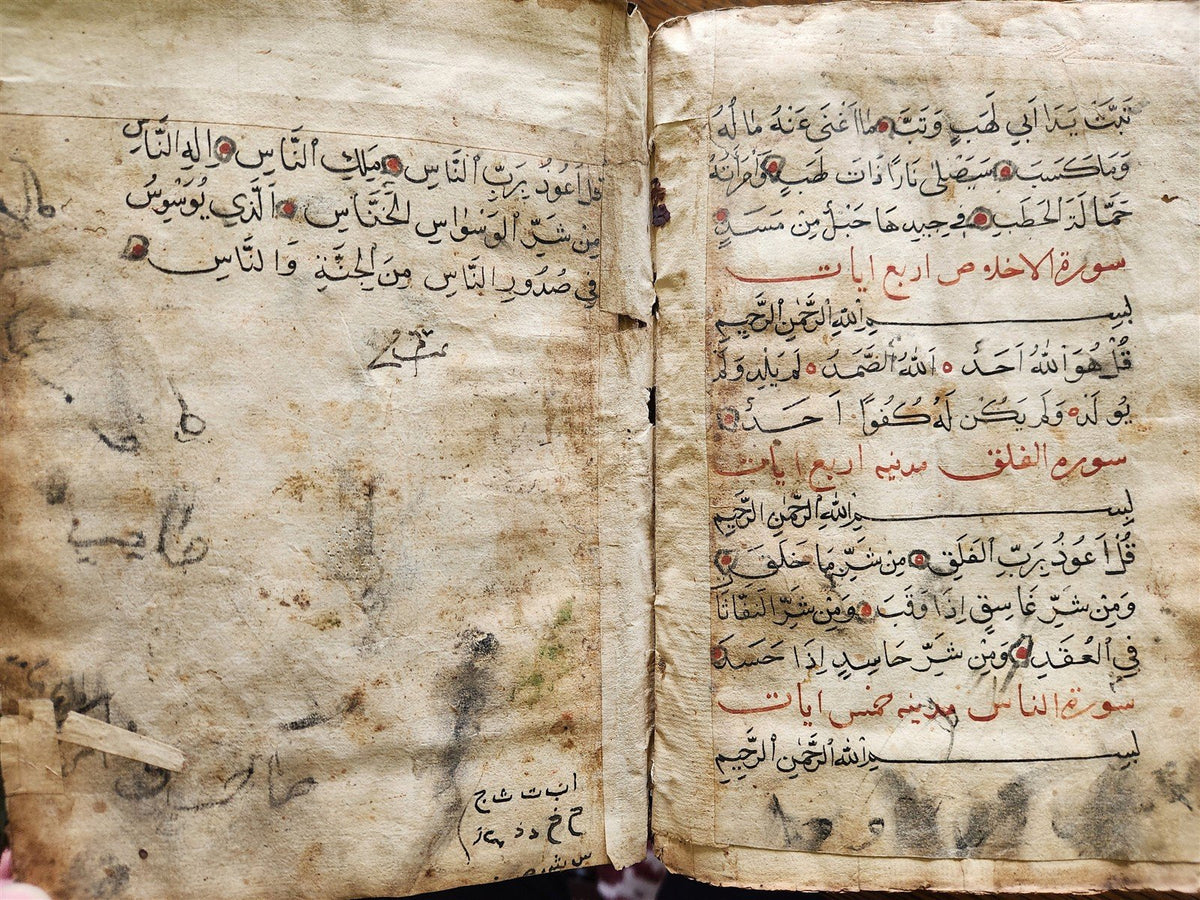 تَبَّتْ يَدَا اَبِي لَهَبٍ وَتَبَّ مَا اَغْنَى عَنْهُ مَا لُهُ
وَمَا كَسَبَ سَيَصْلَى نَارًا ذَاتَ لَهَبٍ وَامْرَاَتُهُ
حَمَّا لَةَ الحَطَبِ فِي جِيدِ هَا حَبْلٌ مِنْ مَسَدٍ
سورة الاخلاص اربع ايات
بِسْمِ اللهِ الرَّحْمٰنِ الرَّحِيمِ
قُلْ هُوَ اللهُ اَحَدٌ اَللهُ الصَّمَدُ لَمْ يَلِدْ وَلَمْ
يُولَدْ وَلَمْ يَكُنْ لَهُ كُفُوًا اَحَدٌ
سوره الفلق مدنيه اربع ايات
بِسْمِ اللهِ الرَّحْمٰنِ الرَّحِيمِ
قُلْ اَعُوذُ بِرَبِّ الفَلَقِ مِنْ شَرِّ مَا خَلَقَ
وَمِنْ شَرِّ غَاسِقٍ اِذَا وَقَبَ وَمِنْ شَرِّ النَفَّاثَا
فِي العُقَدِ وَمِنْ شَرِّ حَاسِدٍ اِذَا حَسَدَ
سورة الناس مدينه خمس ايات
بِسْمِ اللهِ الرَّحْمٰنِ الرَّحِيمِ
قُل اَعُوذُ بِرَبِّ النَّاسِ مَلِكِ النَّاسِ اِلهِ النَّاسِ
مِنْ شَرِّ الوَسْوَاسِ الخَنَّاسِ اَلَّذِي يُوَسْوِسُ
فِي صُدُورِ النَّاسِ مِنَ الجِنَّةِ وَالنَّاسِ
تمت
ا ب ت ث ج
ح خ د ذ ر ز
س ش